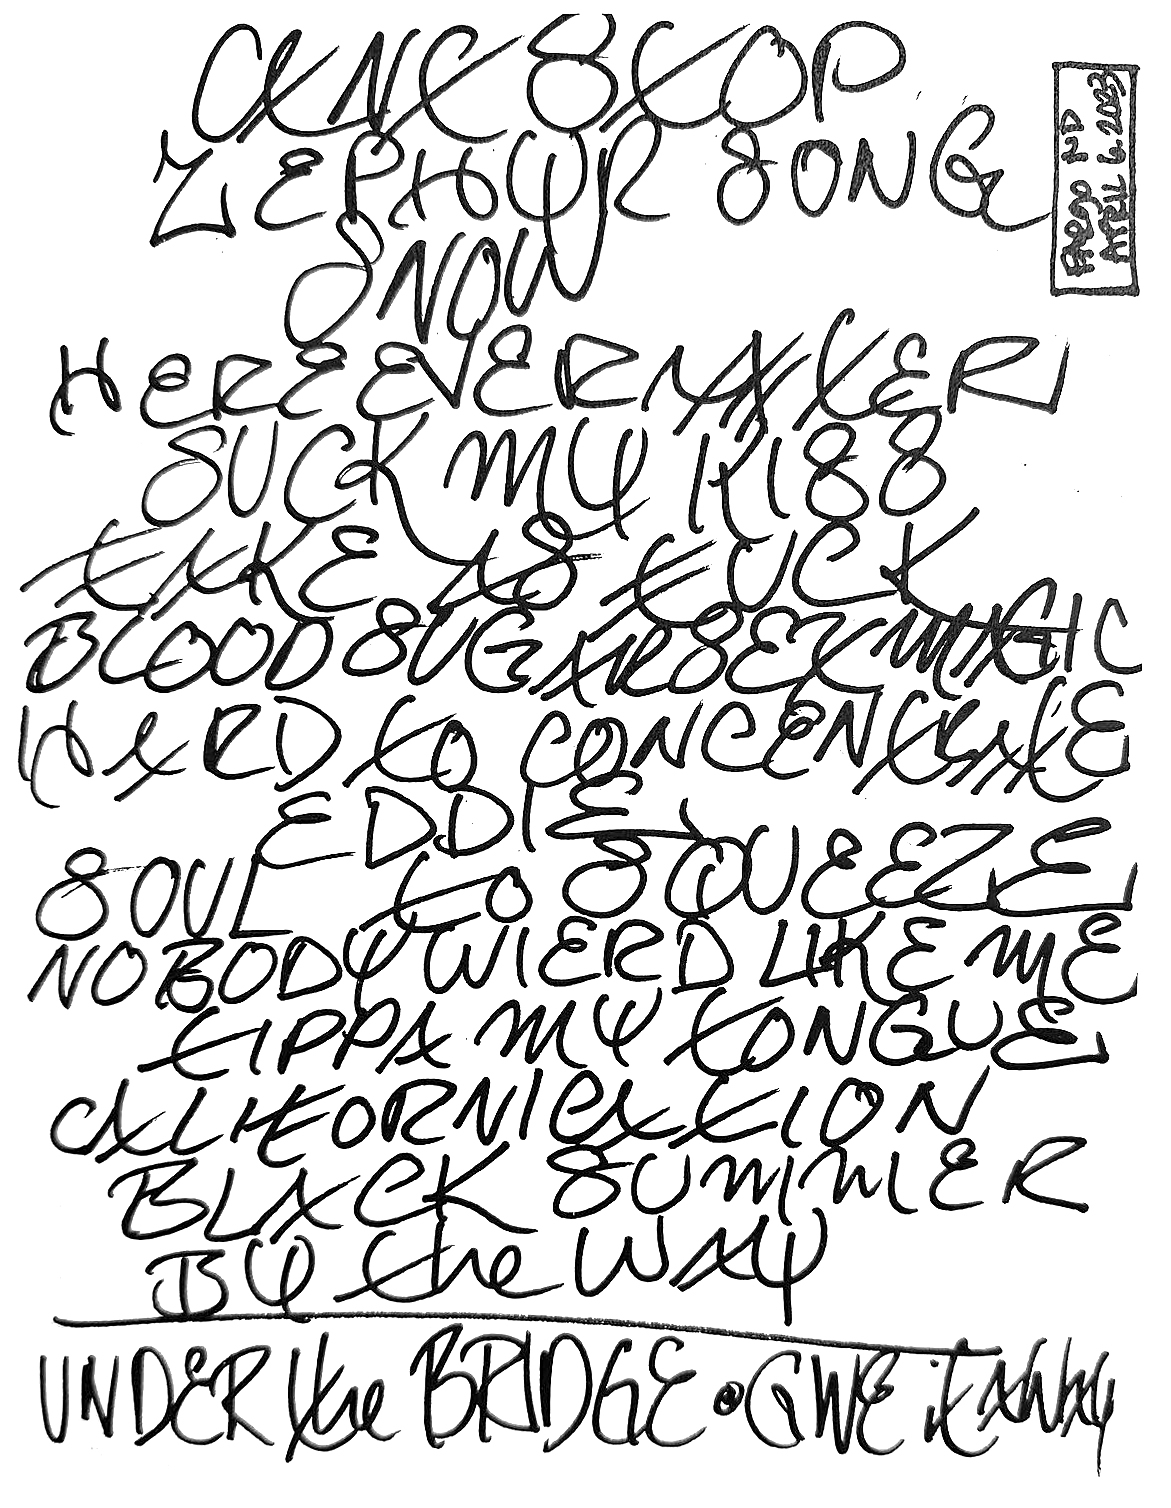 CAN'T STOP
ZEPHYR SONG
SNOW
HERE EVER AFTER
SUCK MY KISS
TAKE AS FUCK
BLOODSUGARSEXMAGIC
HARD TO CONCENTRATE
EDDIE
SOUL TO SQUEEZE
NOBODY WIERD LIKE ME
TIPPA MY TONGUE
CALIFORNICATION
BLACK SUMMER
BY the WAY
UNDER the BRIDGE • GIVE IT AWAY
FARGO ND
APRIL 6 2023